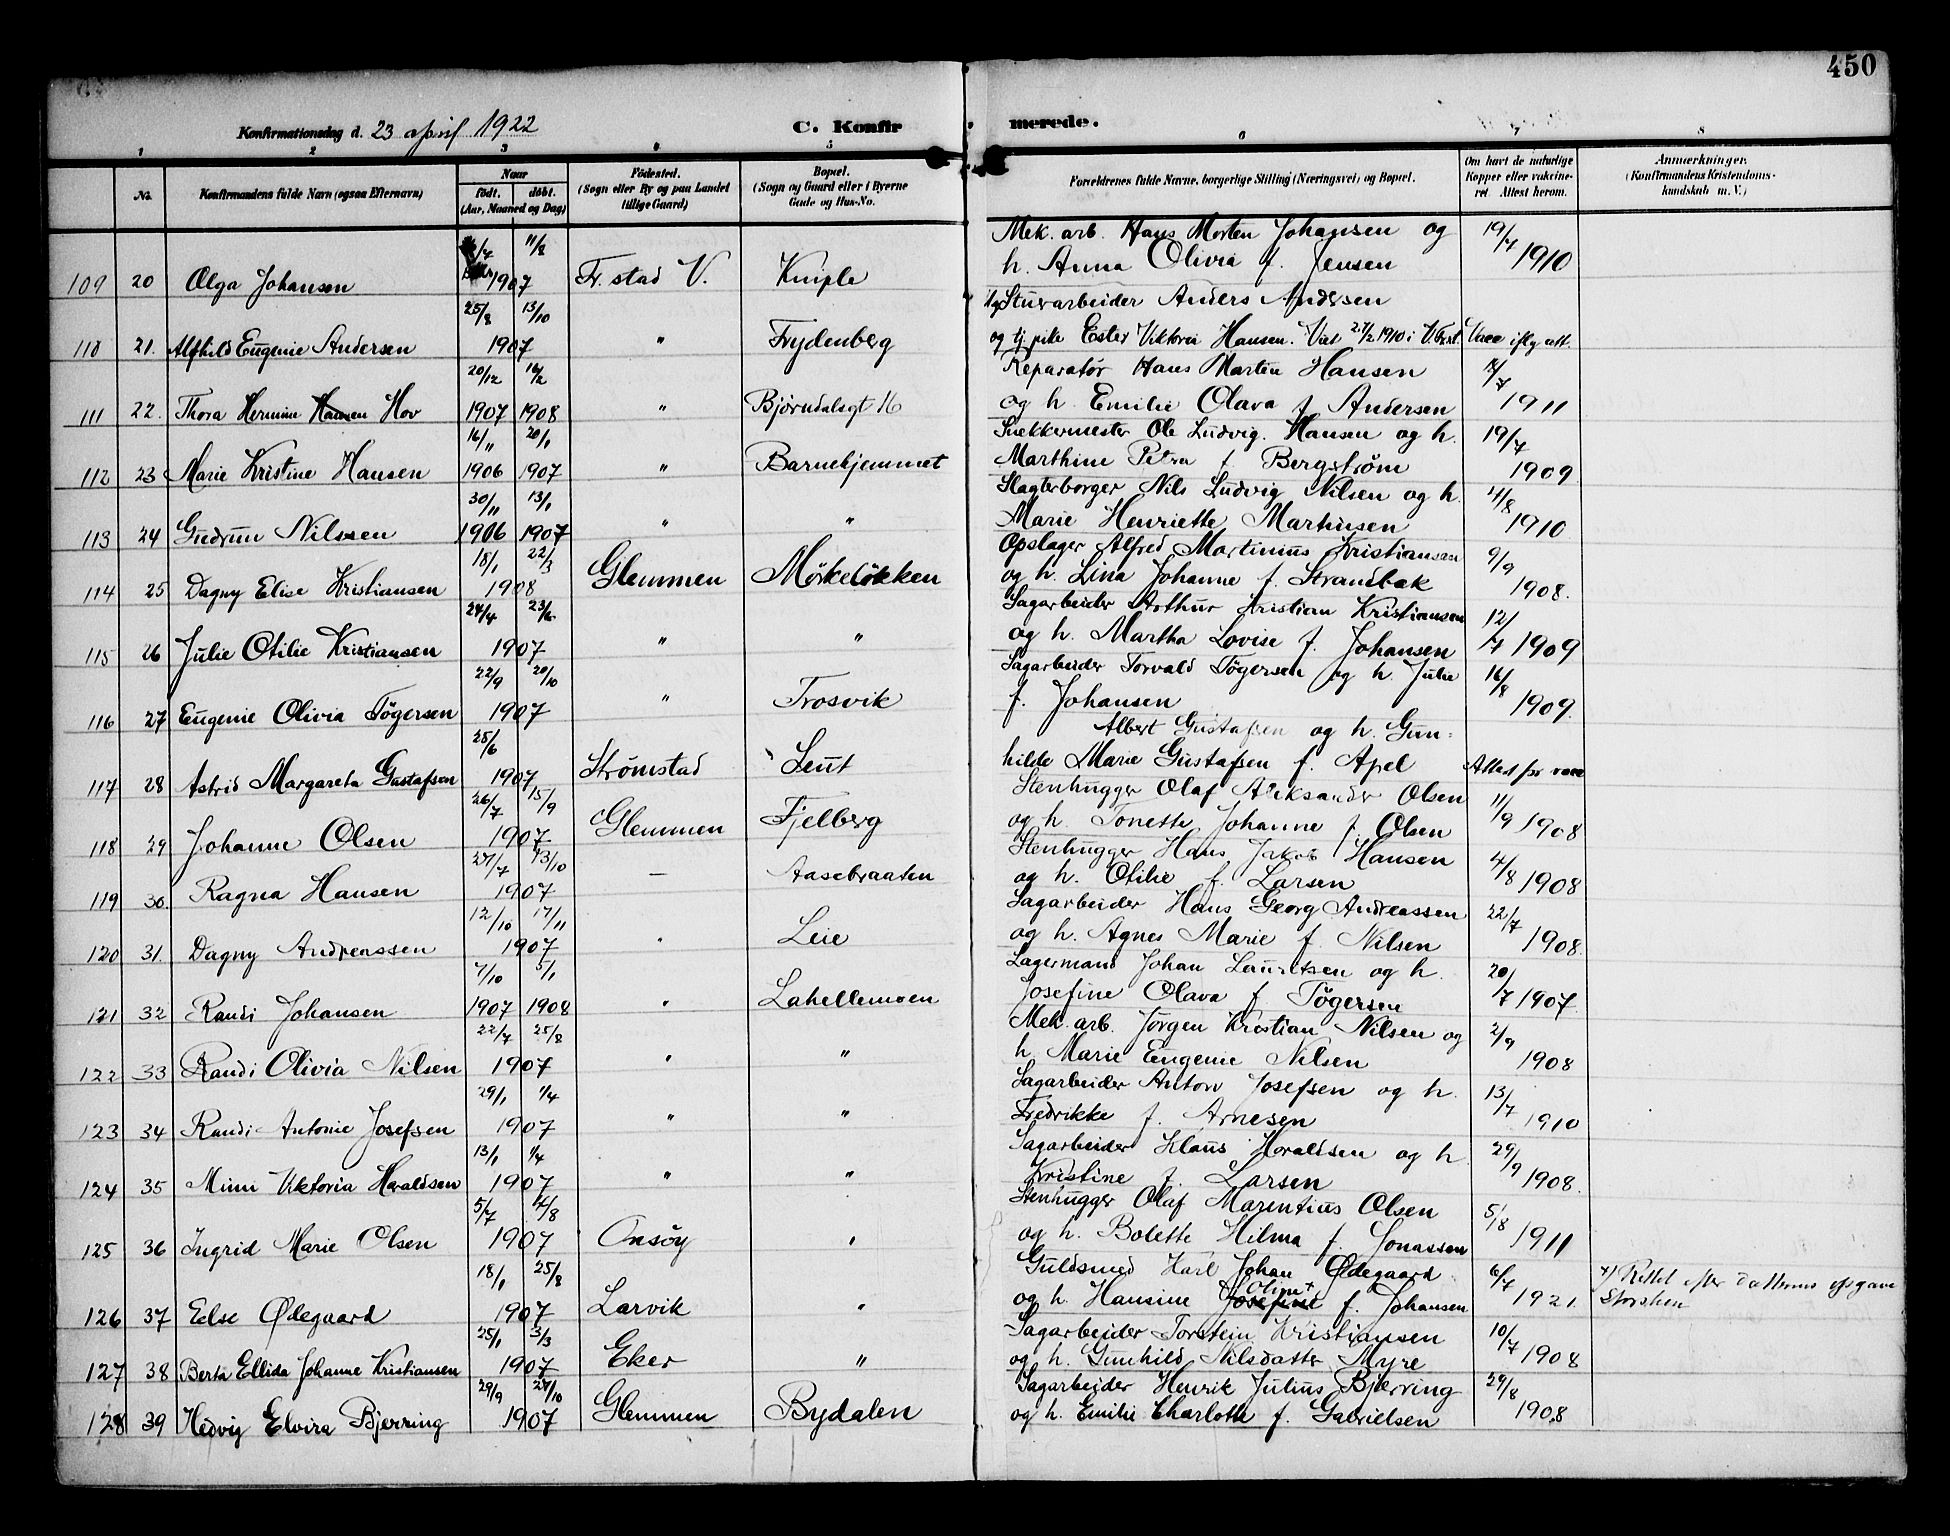 450
Konfirmationsdag d. 23 april 1922 C. Konfirmerede.
1 2 3 4 5 6 7 8
No. Konfirmandens fulde Navn (ogsaa Efternavn) Naar født. døbt. (Aar, Maaned og Dag) Fødested. (Sogn eller By og paa Landet tillige Gaard) Bopæl. (Sogn og Gaard eller i Byerne Gade og Hus-No. Forældrenes fulde Navne, borgerlige Stilling (Næringsvei) og Bopæl. Om havt de naturlige Kopper eller vaccineret Attest herom. Anmærkninger. (Konfirmandens Kristendomskundskab m. V.)
11/8 Mek. arb. Hans Morten Johansen og 19/7
109 20 Olga Johansen 1907 Fr.stad V. Kniple h. Anna Olivia f. Jensen 1910
25/8 13/10 Stuvarbeider Anders Andersen
110 21. Alfhild Eugenie Andersen 1907 " Frydenberg og tj. pike Ester Viktoria Hansen. Viet 27/2 1910 i V. Frst. Vacc iflg att.
20/12 16/2 Reparatør Hans Martin Hansen
111 22. Thora Hermine Hansen Hov 1907 1908 " Bjørndalsgt 16 og h. Emilie Olava f. Andersen 1911
16/11 20/1 Snekkermester Ole Ludvig Hansen og h. 19/7
112 23 Marie Kristine Hansen 1906 1907 " Barnehjemmet Marthine Petra f. Bergstrøm 1909
30/11 13/1 Slagterborger Nils Ludvig Nilsen og h. 4/8
113 24 Gudrun Nilssen 1906 1907 " " Marie Henriette Martinsen 1910
18/1 22/3 Opslager Alfred Martinius Kristiansen 9/9
114 25 Dagny Elise Kristiansen 1908 Glemmen Mørkeløkken og h. Lina Johanne f. Strandbak 1908.
24/4 23/6 Sagarbeider Arthur Kristian Kristiansen 12/
115 26 Julie Otilie Kristiansen 1907 " " og h. Martha Lovise f. Johansen 7 1909
22/9 20/10 Sagarbeider Torvald Tøgersen og h. Julie 16/8
116 27 Eugenie Olivia Tøgersen 1907 " Trosvik f. Johansen 1909.
25/6 Albert Gustafsen og h. Gun-
117 28 Astrid Margareta Gustafsen 1907 Strømstad Leut hilde Marie Gustafsen f. Apel Attest for vacc
26/7 15/9 Stenhugger Olaf Aleksander Olsen 11/9
118 29 Johanne Olsen 1907 Glemmen Fjelberg og h. Tonette Johanne f. Olsen 1908
27/7 13/10 Stenhugger Hans Jakob Hansen 4/8
119 30. Ragna Hansen 1907 — Aasebraaten og h. Otilie f. Larsen 1908
12/10 17/11 Sagarbeider Hans Georg Andreassen 22/7
120 31. Dagny Andreassen 1907 " Leie og h. Agnes Marie f. Nilsen 1908
7/10 5/1 Lagermand Johan Lauritsen og h. 20/
121 32 Randi Johansen 1907 1908 " Lahellemoen Josefine Olava f. Tøgersen 7 1907
22/7 25/8 Mek. arb. Jørgen Kristian Nilsen og 2/9
122 33 Randi Olivia Nilsen 1907 " " h. Marie Eugenie Nilsen 1908
29/1 1/4 Sagarbeider Anton Josefsen og h. 13/7
123 34 Randi Antonie Josefsen 1907 " " Fredrikke f. Arnesen 1910
13/1 1/4 Sagarbeider Klaus Haraldsen og h 29/9
124 35 Mimi Viktoria Haraldsen 1907 " " Kristine f. Larsen 1908.
5/7 4/8 Stenhugger Olaf Marentius Olsen 5/8
125 36 Ingrid Marie Olsen 1907 Onsøy " og h. Bolette Hilma f. Jonassen 1911
18/1 25/8 Guldsmed Karl Johan Ødegaard 6/7 x) Rettet efter datterens opgave
126 37 Else Ødegaard 1907 Larvik " og h. Hansine Josefine Oline x f. Johansen 1921.
25/1 3/3 Sagarbeider Torstein Kristiansen 10/7
127 38 Berta Ellida Johanne Kristiansen 1907 Eker " og h. Gunhild Nilsdatter Myre 1908
29/9 27/10 Sagarbeider Henrik Julius Bjerring 29/8
128 39 Hedvig Elvira Bjerring 1907 Glemmen Bydalen og h. Emilie Charlotte f. Gabrielsen 1908